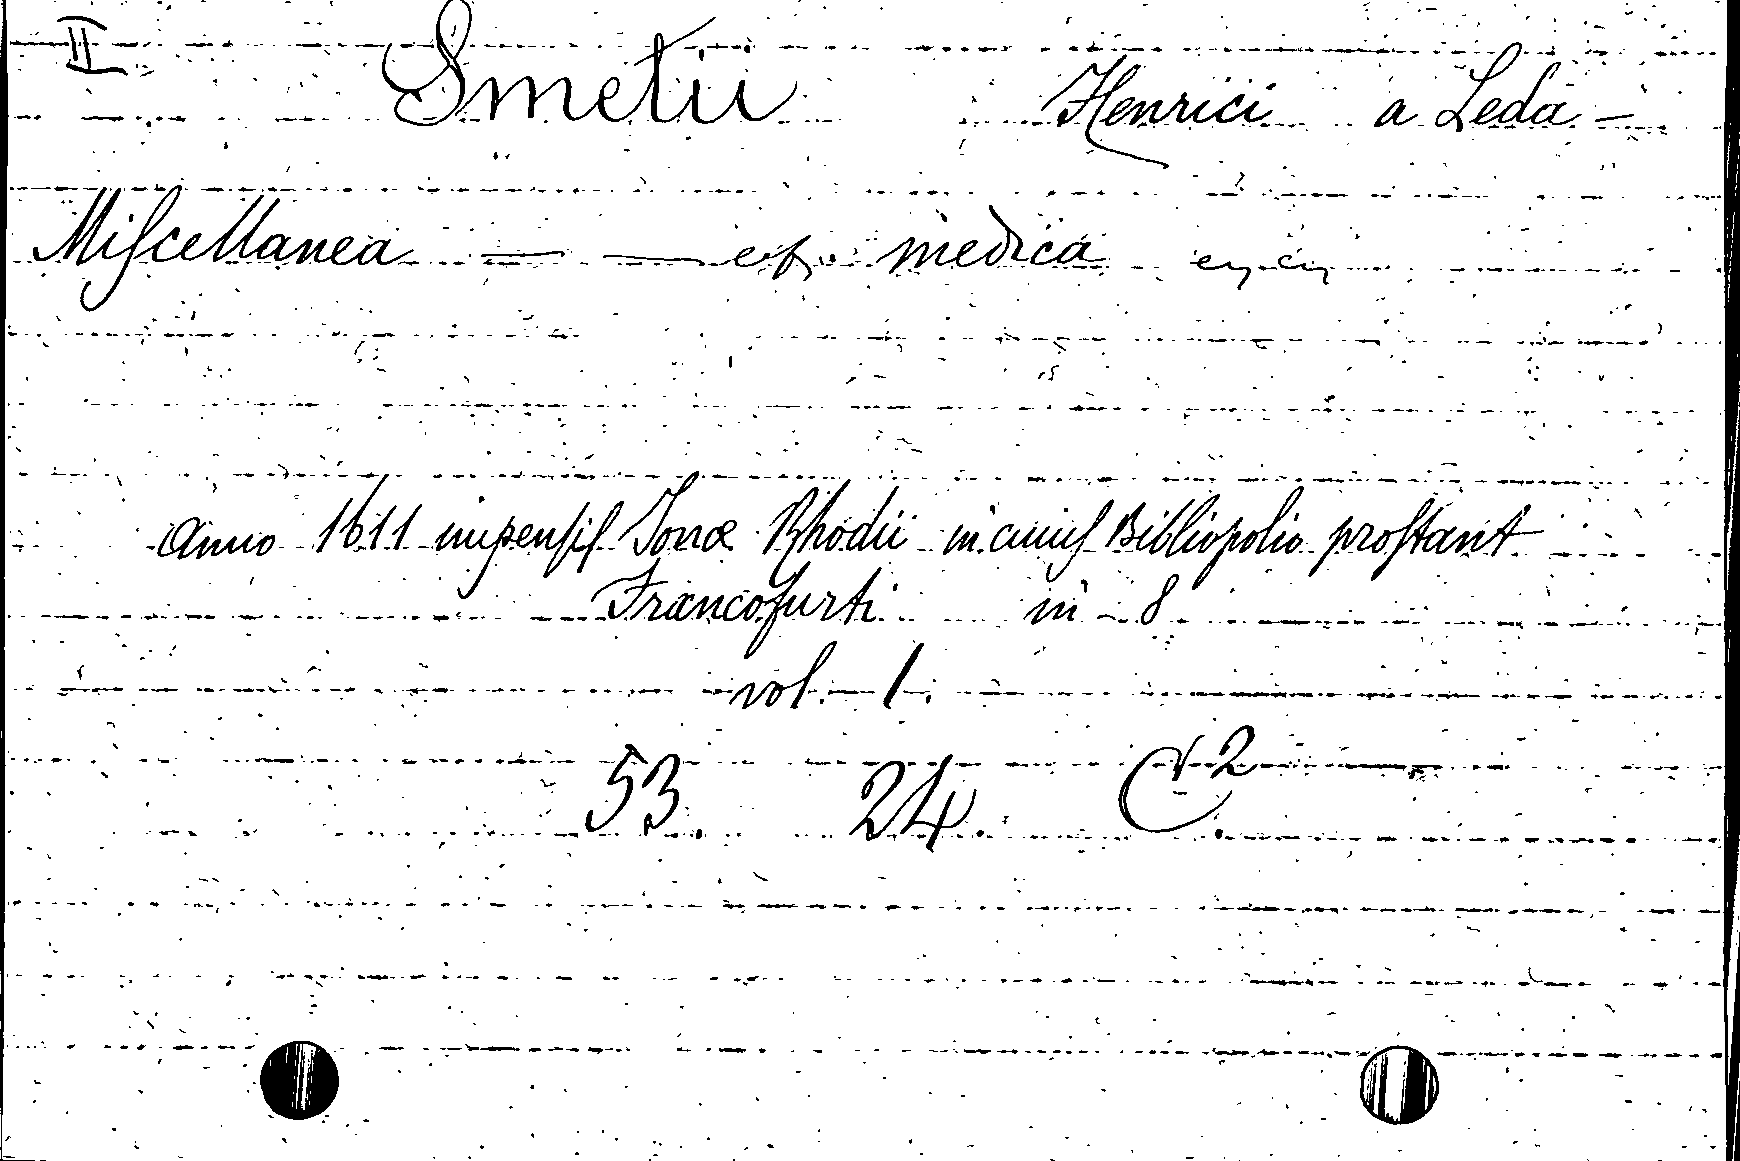 II
Smetii Henrici a Leda -
Miſcellanea — — medica
Anno 1611 impenſiſ Jonæ Rhodii in cuiuſ Bibliopolio proſtant
Francofurti in 8
vol. 1.
53. 24.